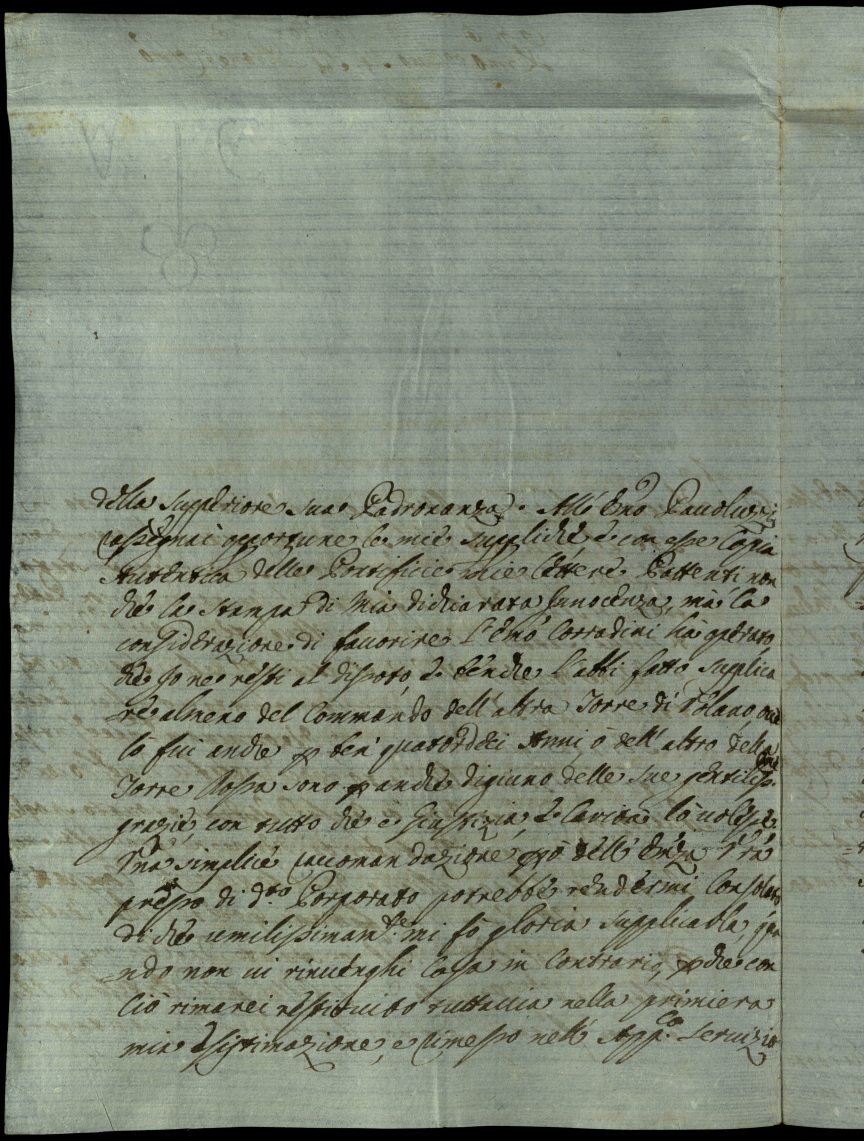 della Superiore sua Padronanza. All'Emo Pauoluzzi
rassegnai opportune le mie suppliche, e con esse Copia
Autentica delle Pontificie mie lettere Pattenti non
che la stampa di mia dichiarata Innocenza, mà la
considerazione di fauorire l'Emo Corradini hà operato
che Io ne resti al disoto, e benche l'abbi fatto supplica
re almeno del Commando dell'altra Torre di Volano, oue
lo fui anche p ben quatordici Anni, ò dell'altro della
Torre Rossa sono anche digiuno delle sue gentilissme
grazie, con tutto che e Giustizia, e Carità lo uolesse,
Vna simplice racomandazione pò dell'Enza Vra
presso di do Porporato potrebbe rendermi Consolato
di che umilissimamte mi fò gloria supplicarla, qua
ndo non ui rinuenghi Cosa in Contrario, pche con
ciò rimarei restituito tuttauia nella primiera
mia esistimazione, e rimesso nell'Appco Seruizio